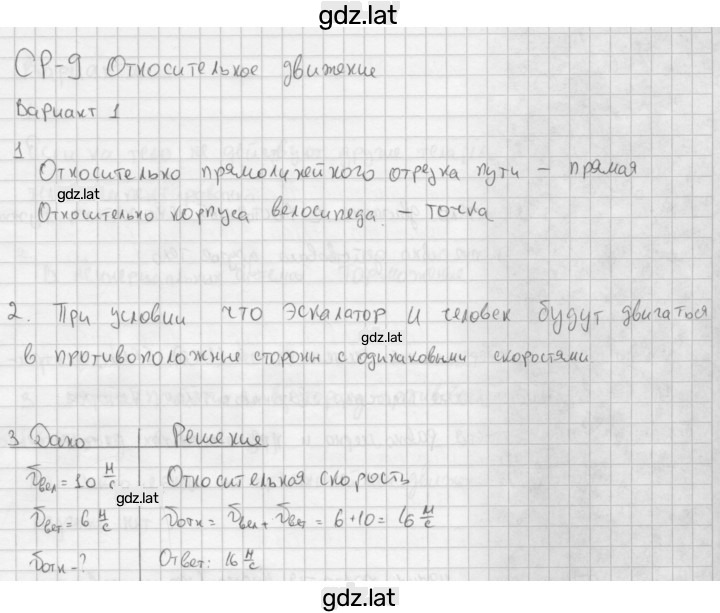 gdz.lat
СР-9 Относительное движение
Вариант 1
1
Относительно прямолинейного отрезка пути - прямая
gdz.lat
Относительно корпуса велосипеда. - точка
2. При условии что эскалатор и человек будут двигаться
gdz.lat
в противоположные стороны с одинаковыми скоростями
3 Дано Решение
υвел = 10 м/с Относительная скорость
gdz.lat
υвет = 6 м/с υотн = υвел + υвет = 6+10 = 16 м/с
υотн - ? Ответ: 16 м/с
gdz.lat